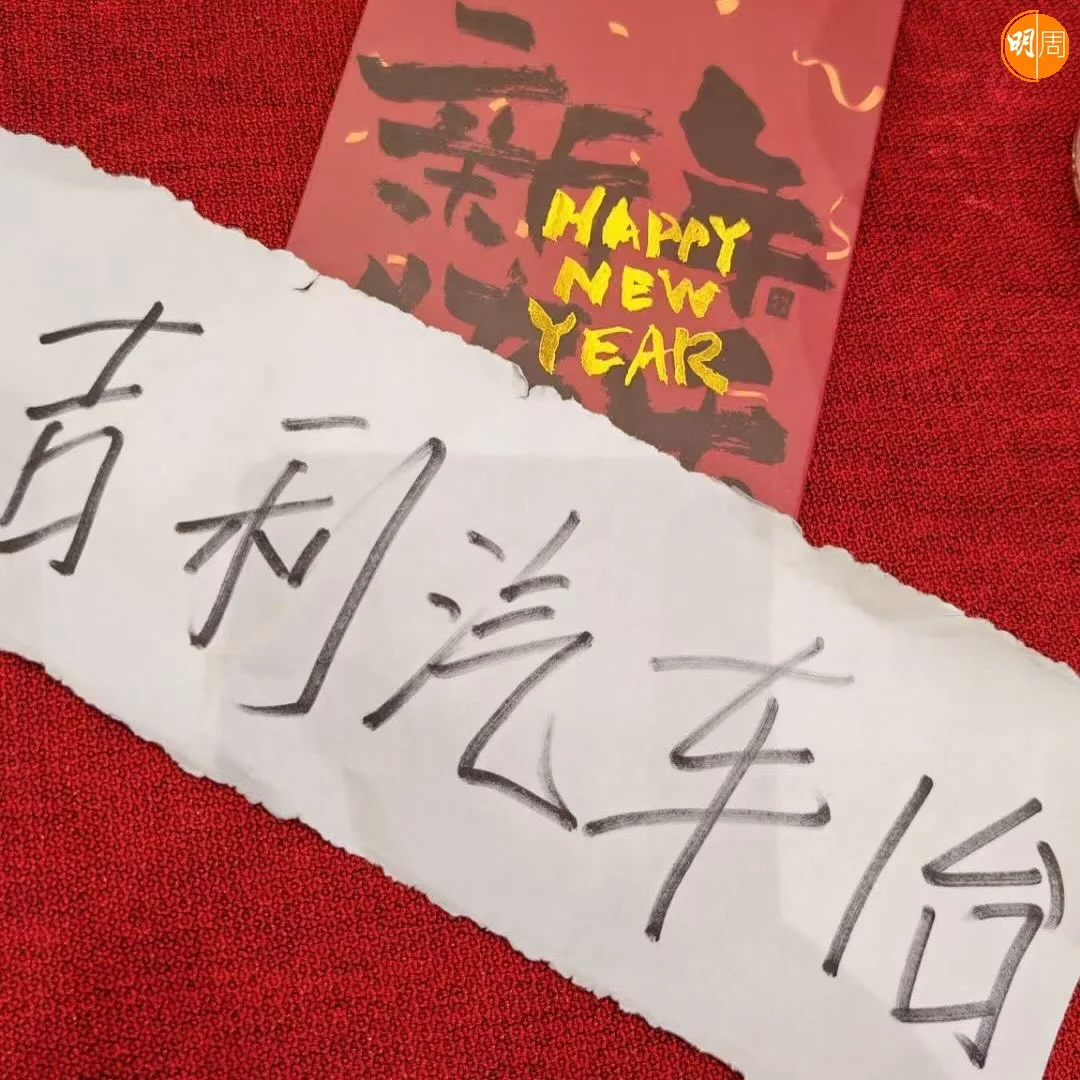 明周
新年
快樂
HAPPY
NEW
YEAR
吉利汽车1台